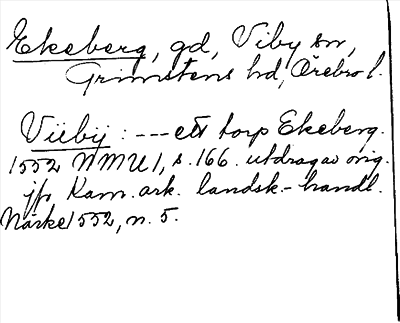 Ekeberg, gd, Viby sn,
Grimstens hd, Örebro l.
Viibij : --- ett torp Ekeberg.
1552 NMU 1, s. 166. utdrag av orig.
jfr Kam. ark. landsk.-handl.
Närke 1552, n. 5.